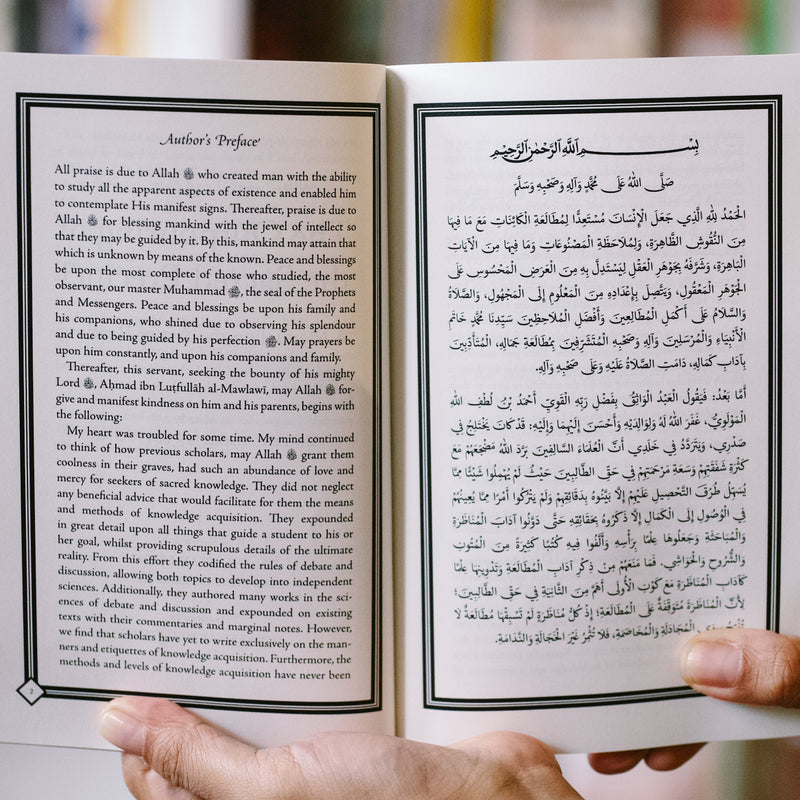 Author's Preface
All praise is due to Allah ﷻ who created man with the ability
to study all the apparent aspects of existence and enabled him
to contemplate His manifest signs. Thereafter, praise is due to
Allah ﷻ for blessing mankind with the jewel of intellect so
that they may be guided by it. By this, mankind may attain that
which is unknown by means of the known. Peace and blessings
be upon the most complete of those who studied, the most
observant, our master Muhammad ﷺ, the seal of the Prophets
and Messengers. Peace and blessings be upon his family and
his companions, who shined due to observing his splendour
and due to being guided by his perfection ﷺ. May prayers be
upon him constantly, and upon his companions and family.
Thereafter, this servant, seeking the bounty of his mighty
Lord ﷻ, Aḥmad ibn Luṭfullāh al-Mawlawī, may Allah ﷻ for-
give and manifest kindness on him and his parents, begins with
the following:
My heart was troubled for some time. My mind continued
to think of how previous scholars, may Allah ﷻ grant them
coolness in their graves, had such an abundance of love and
mercy for seekers of sacred knowledge. They did not neglect
any beneficial advice that would facilitate for them the means
and methods of knowledge acquisition. They expounded
in great detail upon all things that guide a student to his or
her goal, whilst providing scrupulous details of the ultimate
reality. From this effort they codified the rules of debate and
discussion, allowing both topics to develop into independent
sciences. Additionally, they authored many works in the sci-
ences of debate and discussion and expounded on existing
texts with their commentaries and marginal notes. However,
we find that scholars have yet to write exclusively on the man-
ners and etiquettes of knowledge acquisition. Furthermore, the
methods and levels of knowledge acquisition have never been
2
بِسْمِ اللَّهِ الرَّحْمَٰنِ الرَّحِيْمِ
صَلَّى اللهُ عَلَى مُحَمَّدٍ وَآلِهِ وَصَحْبِهِ وَسَلَّمَ
الْحَمْدُ لِلَّهِ الَّذِي جَعَلَ الْإِنْسَانَ مُسْتَعِدًّا لِمُطَالَعَةِ الْكَائِنَاتِ مَعَ مَا فِيهَا
مِنَ النُّقُوشِ الظَّاهِرَةِ، وَلِمُلَاحَظَةِ الْمَصْنُوعَاتِ وَمَا فِيهَا مِنَ الْآيَاتِ
الْبَاهِرَةِ، وَشَرَّفَهُ بِجَوْهَرِ الْعَقْلِ لِيَسْتَدِلَّ بِهِ مِنَ الْعَرَضِ الْمَحْسُوسِ عَلَى
الْجَوْهَرِ الْمَعْقُولِ، وَيَتَّصِلَ بِإِعْدَادِهِ مِنَ الْمَعْلُومِ إِلَى الْمَجْهُولِ، وَالصَّلَاةُ
وَالسَّلَامُ عَلَى أَكْمَلِ الْمُطَالِعِينَ وَأَفْضَلِ الْمُلَاحِظِينَ سَيِّدِنَا مُحَمَّدٍ خَاتَمِ
الْأَنْبِيَاءِ وَالْمُرْسَلِينَ وَآلِهِ وَصَحْبِهِ الْمُتَشَرِّفِينَ بِمُطَالَعَةِ جَمَالِهِ، الْمُتَأَدِّبِينَ
بِآدَابِ كَمَالِهِ، دَامَتِ الصَّلَاةُ عَلَيْهِ وَعَلَى صَحْبِهِ وَآلِهِ.
أَمَّا بَعْدُ: فَيَقُولُ الْعَبْدُ الْوَاثِقُ بِفَضْلِ رَبِّهِ الْقَوِيِّ أَحْمَدُ بْنُ لُطْفِ اللهِ
الْمَوْلَوِيُّ، غَفَرَ اللهُ لَهُ وَلِوَالِدَيْهِ وَأَحْسَنَ إِلَيْهِمَا وَإِلَيْهِ: قَدْ كَانَ يَخْتَلِجُ فِي
صَدْرِي، وَيَتَرَدَّدُ فِي خَلَدِي أَنَّ الْعُلَمَاءَ السَّالِفِينَ بَرَّدَ اللهُ مَضْجَعَهُمْ مَعَ
كَثْرَةِ شَفَقَتِهِمْ وَسَعَةِ مَرْحَمَتِهِمْ فِي حَقِّ الطَّالِبِينَ حَيْثُ لَمْ يُهْمِلُوا شَيْئًا مِمَّا
يُسَهِّلُ طُرُقَ التَّحْصِيلِ عَلَيْهِمْ إِلَّا بَيَّنُوهُ بِدَقَائِقِهِمْ وَلَمْ يَتْرُكُوا أَمْرًا مِمَّا يُعِينُهُمْ
فِي الْوُصُولِ إِلَى الْكَمَالِ إِلَّا ذَكَرُوهُ بِحَقَائِقِهِ حَتَّى دَوَّنُوا آدَابَ الْمُنَاظَرَةِ
وَالْمُبَاحَثَةِ وَجَعَلُوهَا عِلْمًا بِرَأْسِهِ وَأَلَّفُوا فِيهِ كُتُبًا كَثِيرَةً مِنَ الْمُتُونِ
وَالشُّرُوحِ وَالْحَوَاشِي. فَمَا مَنَعَهُمْ مِنْ ذِكْرِ آدَابِ الْمُطَالَعَةِ وَتَدْوِينِهَا عِلْمًا
كَآدَابِ الْمُنَاظَرَةِ مَعَ كَوْنِ الْأُولَى أَهَمَّ مِنَ الثَّانِيَةِ فِي حَقِّ الطَّالِبِينَ؛
لِأَنَّ الْمُنَاظَرَةَ مُتَوَقِّفَةٌ عَلَى الْمُطَالَعَةِ؛ إِذْ كُلُّ مُنَاظَرَةٍ لَمْ تَسْبِقْهَا مُطَالَعَةٌ لَا
الْمُجَادَلَةِ وَالْمُخَاصَمَةِ، فَلَا تُثْمِرُ غَيْرَ الْخَجَالَةِ وَالنَّدَامَةِ.